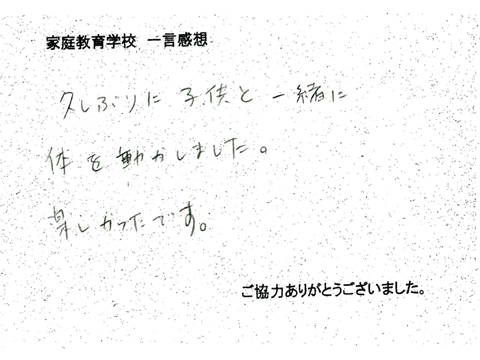 家庭教育学校 一言感想
久しぶりに子供と一緒に
体を動かしました。
楽しかったです。
ご協力ありがとうございました。